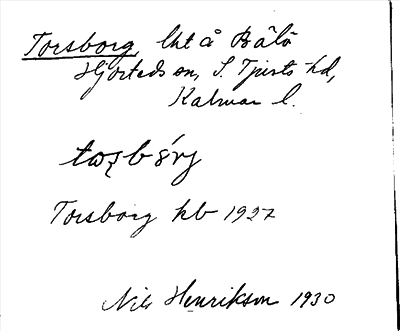 Torsborg, lht å Bålö
Hjorteds sn, S. Tjusts hd,
Kalmar l.
Torsborg kb 1927
Nils Henrikson 1930